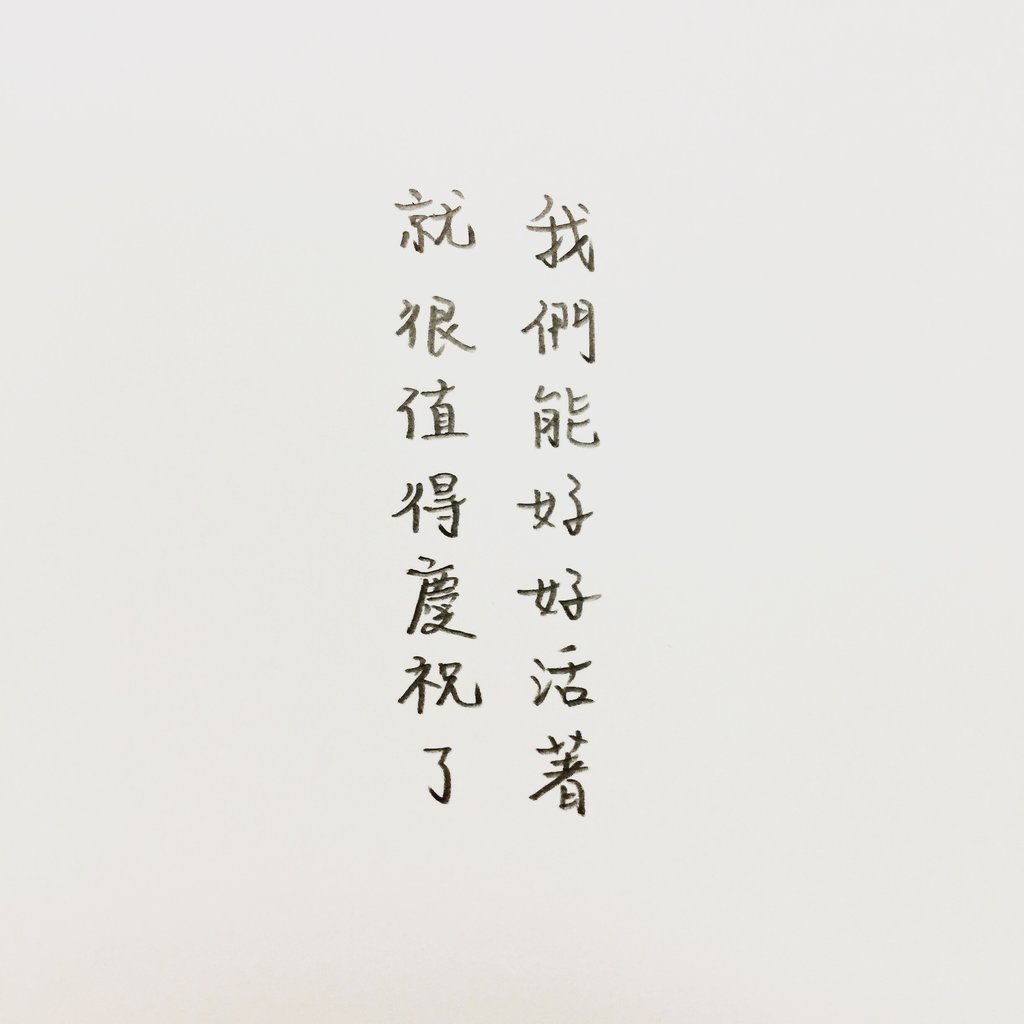 我們能好好活著
就很值得慶祝了